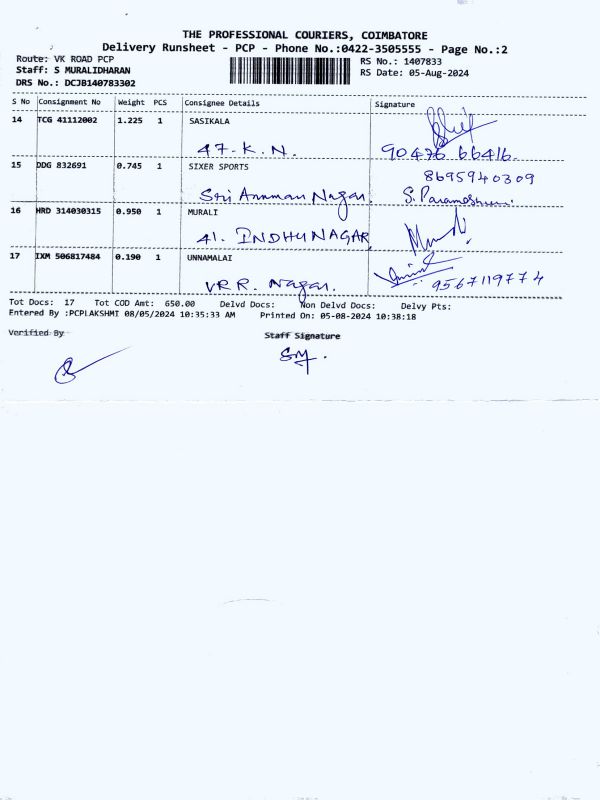 THE PROFESSIONAL COURIERS, COIMBATORE
Delivery Runsheet - PCP - Phone No.:0422-3505555 - Page No.:2
Route: VK ROAD PCP
Staff: S MURALIDHARAN
DRS No.: DCJB140783302
RS No.: 1407833
RS Date: 05-Aug-2024
S No Consignment No Weight PCS Consignee Details Signature
14 TCG 41112002 1.225 1 SASIKALA
47-K.N. 90476 66416
15 DDG 832691 0.745 1 SIXER SPORTS 8695940309
Sri Amman Nagar. S. Parameshwari
16 HRD 314030315 0.950 1 MURALI
41. INDHU NAGAR
17 IXM 506817484 0.190 1 UNNAMALAI
VRR. Nagar. 9567119774
Tot Docs: 17 Tot COD Amt: 650.00 Delvd Docs: Non Delvd Docs: Delvy Pts:
Entered By :PCPLAKSHMI 08/05/2024 10:35:33 AM Printed On: 05-08-2024 10:38:18
Verified By Staff Signature